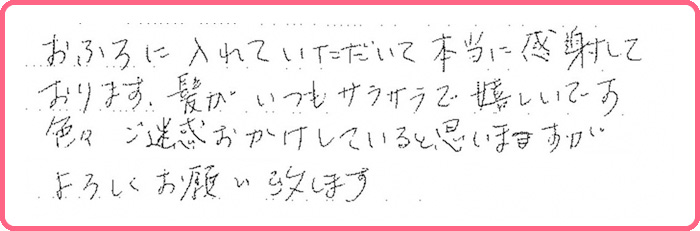 おふろに入れていただいて本当に感謝して
おります、髪がいつもサラサラで嬉しいです
色々ご迷惑おかけしていると思いますが
よろしくお願い致します